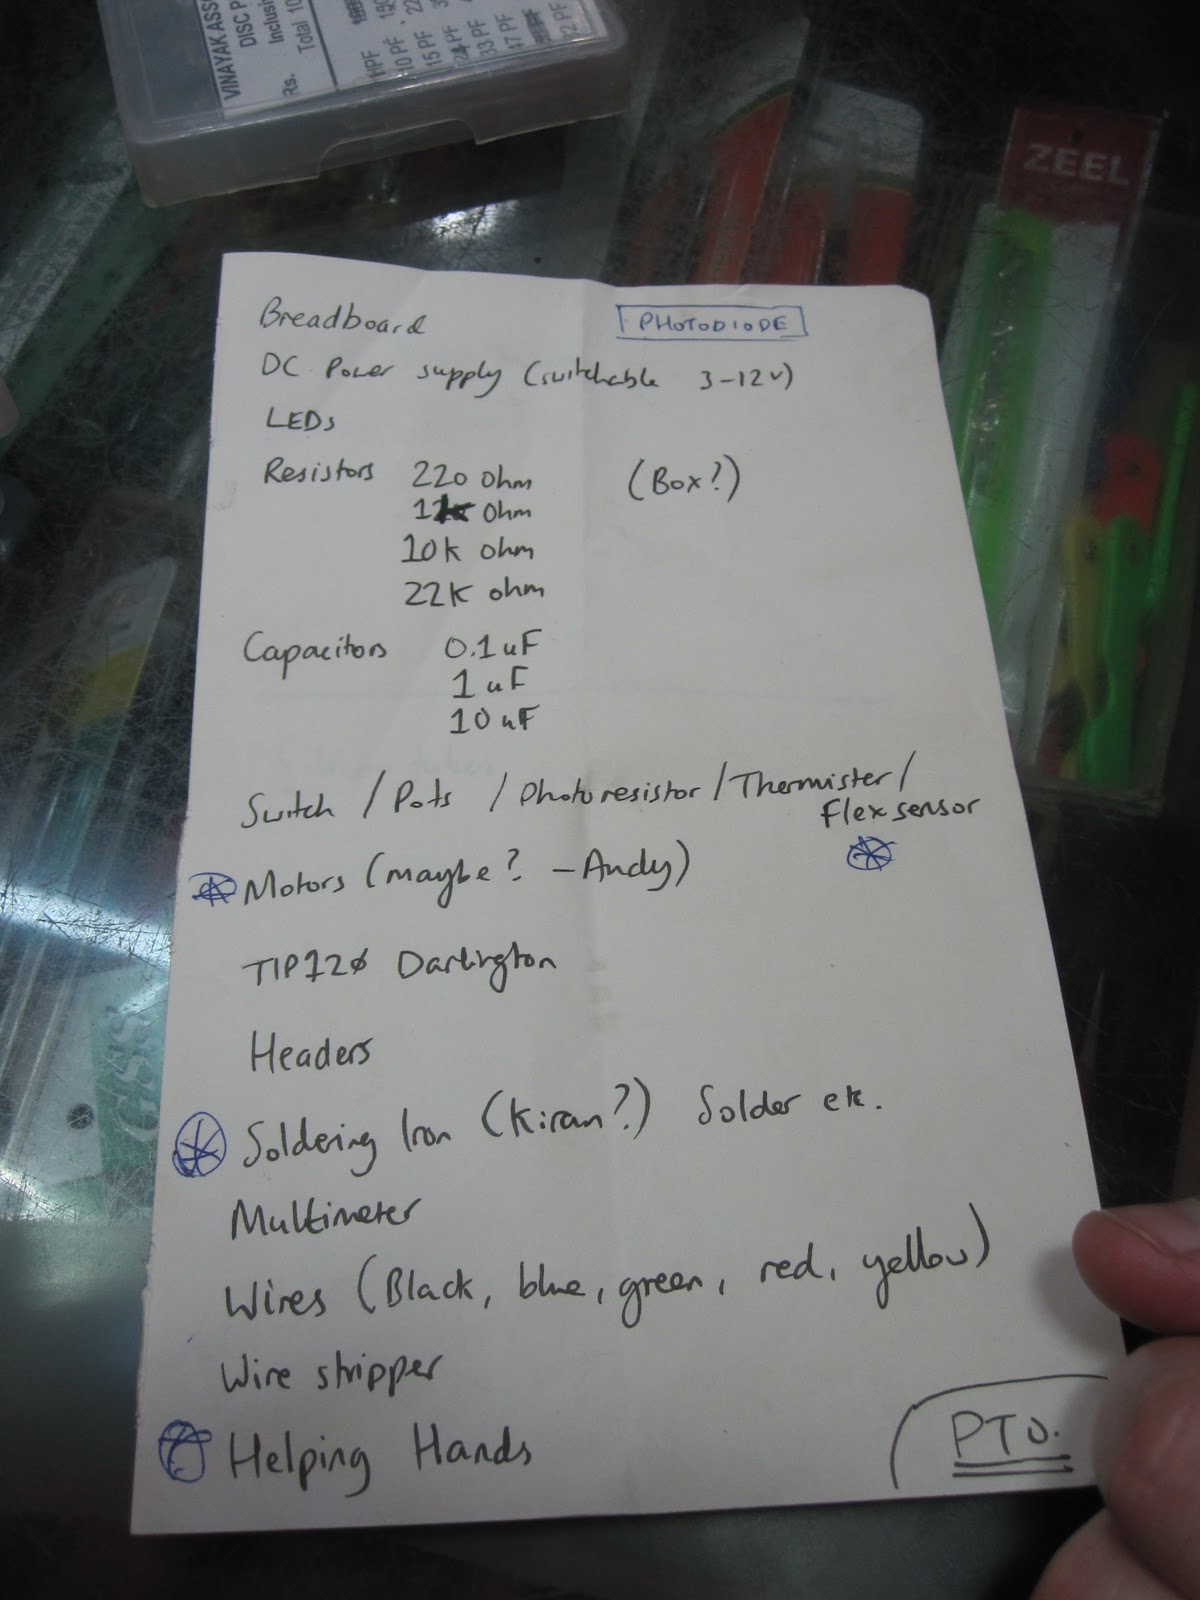 VINAYAK ASS
DISC P
Rs. Inclusi
Total 10
10 PF
15 PF
33 PF
ZEEL
Breadboard
PHOTODIODE
DC Power supply (switchable 3-12v)
LEDs
Resistors 220 ohm (Box?)
1k ohm
10k ohm
22k ohm
Capacitors 0.1uF
1 uF
10 uF
Switch / Pots / Photoresistor / Thermister /
Flex sensor
Motors (maybe? - Andy)
TIP120 Darlington
Headers
Soldering Iron (Kiran?) Solder etc.
Multimeter
Wires (Black, blue, green, red, yellow)
Wire stripper
Helping Hands
PTO.